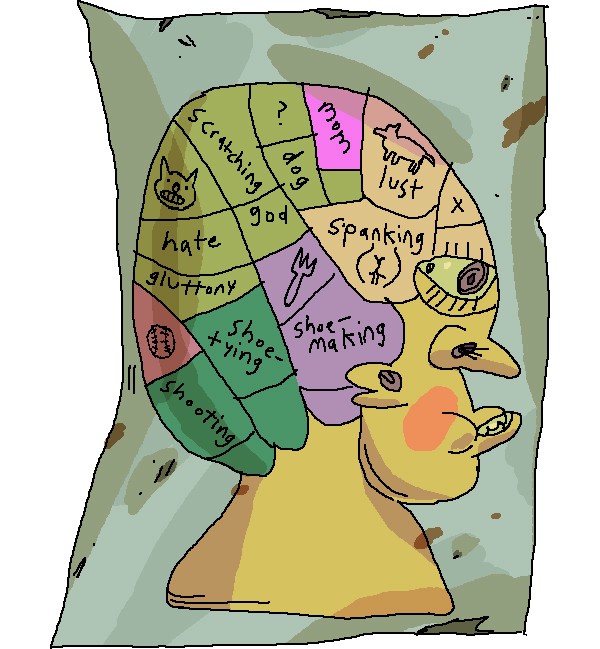 ?
mom
scratching
dog
lust
x
god
spanking
hate
gluttony
shoe-
making
shoe-
tying
shooting